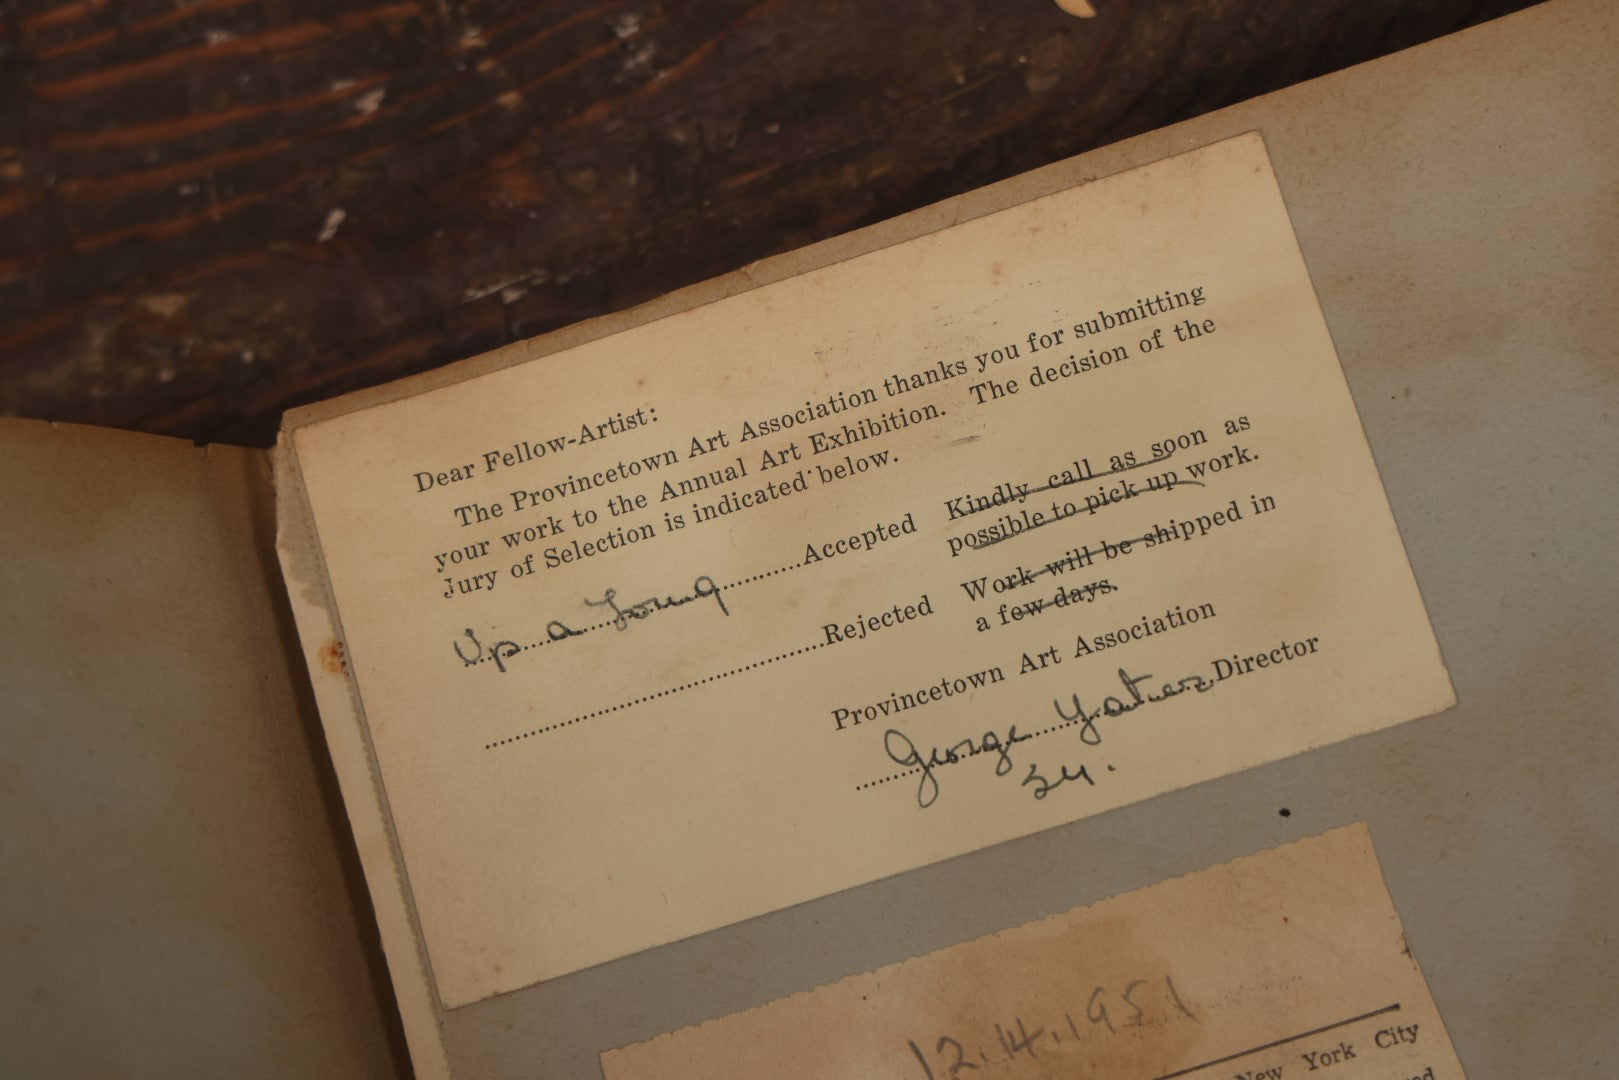 Dear Fellow-Artist:
The Provincetown Art Association thanks you for submitting
your work to the Annual Art Exhibition. The decision of the
Jury of Selection is indicated below.
Up a Long Accepted Kindly call as soon as
possible to pick up work.
Rejected Work will be shipped in
a few days.
Provincetown Art Association
George Yater Director
12.14.1951
New York City